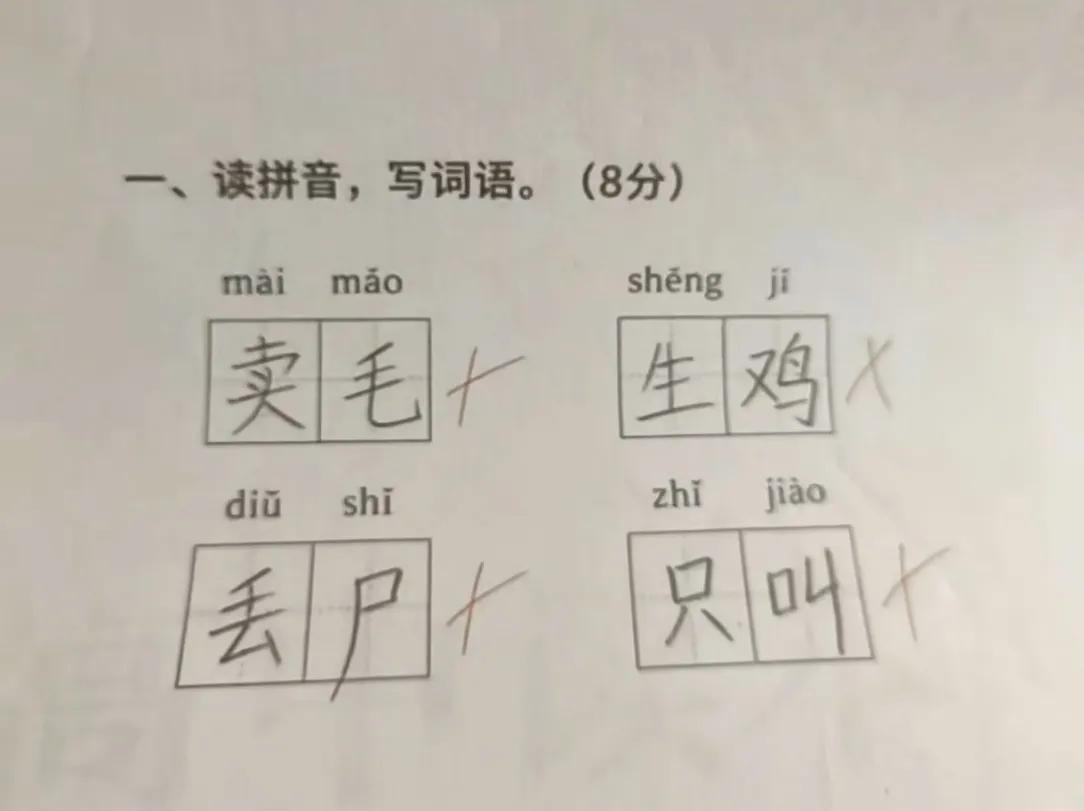 一、读拼音，写词语。（8分）
mài mǎo shěng jǐ
卖毛 生鸡
diǔ shǐ zhǐ jiào
丢尸 只叫